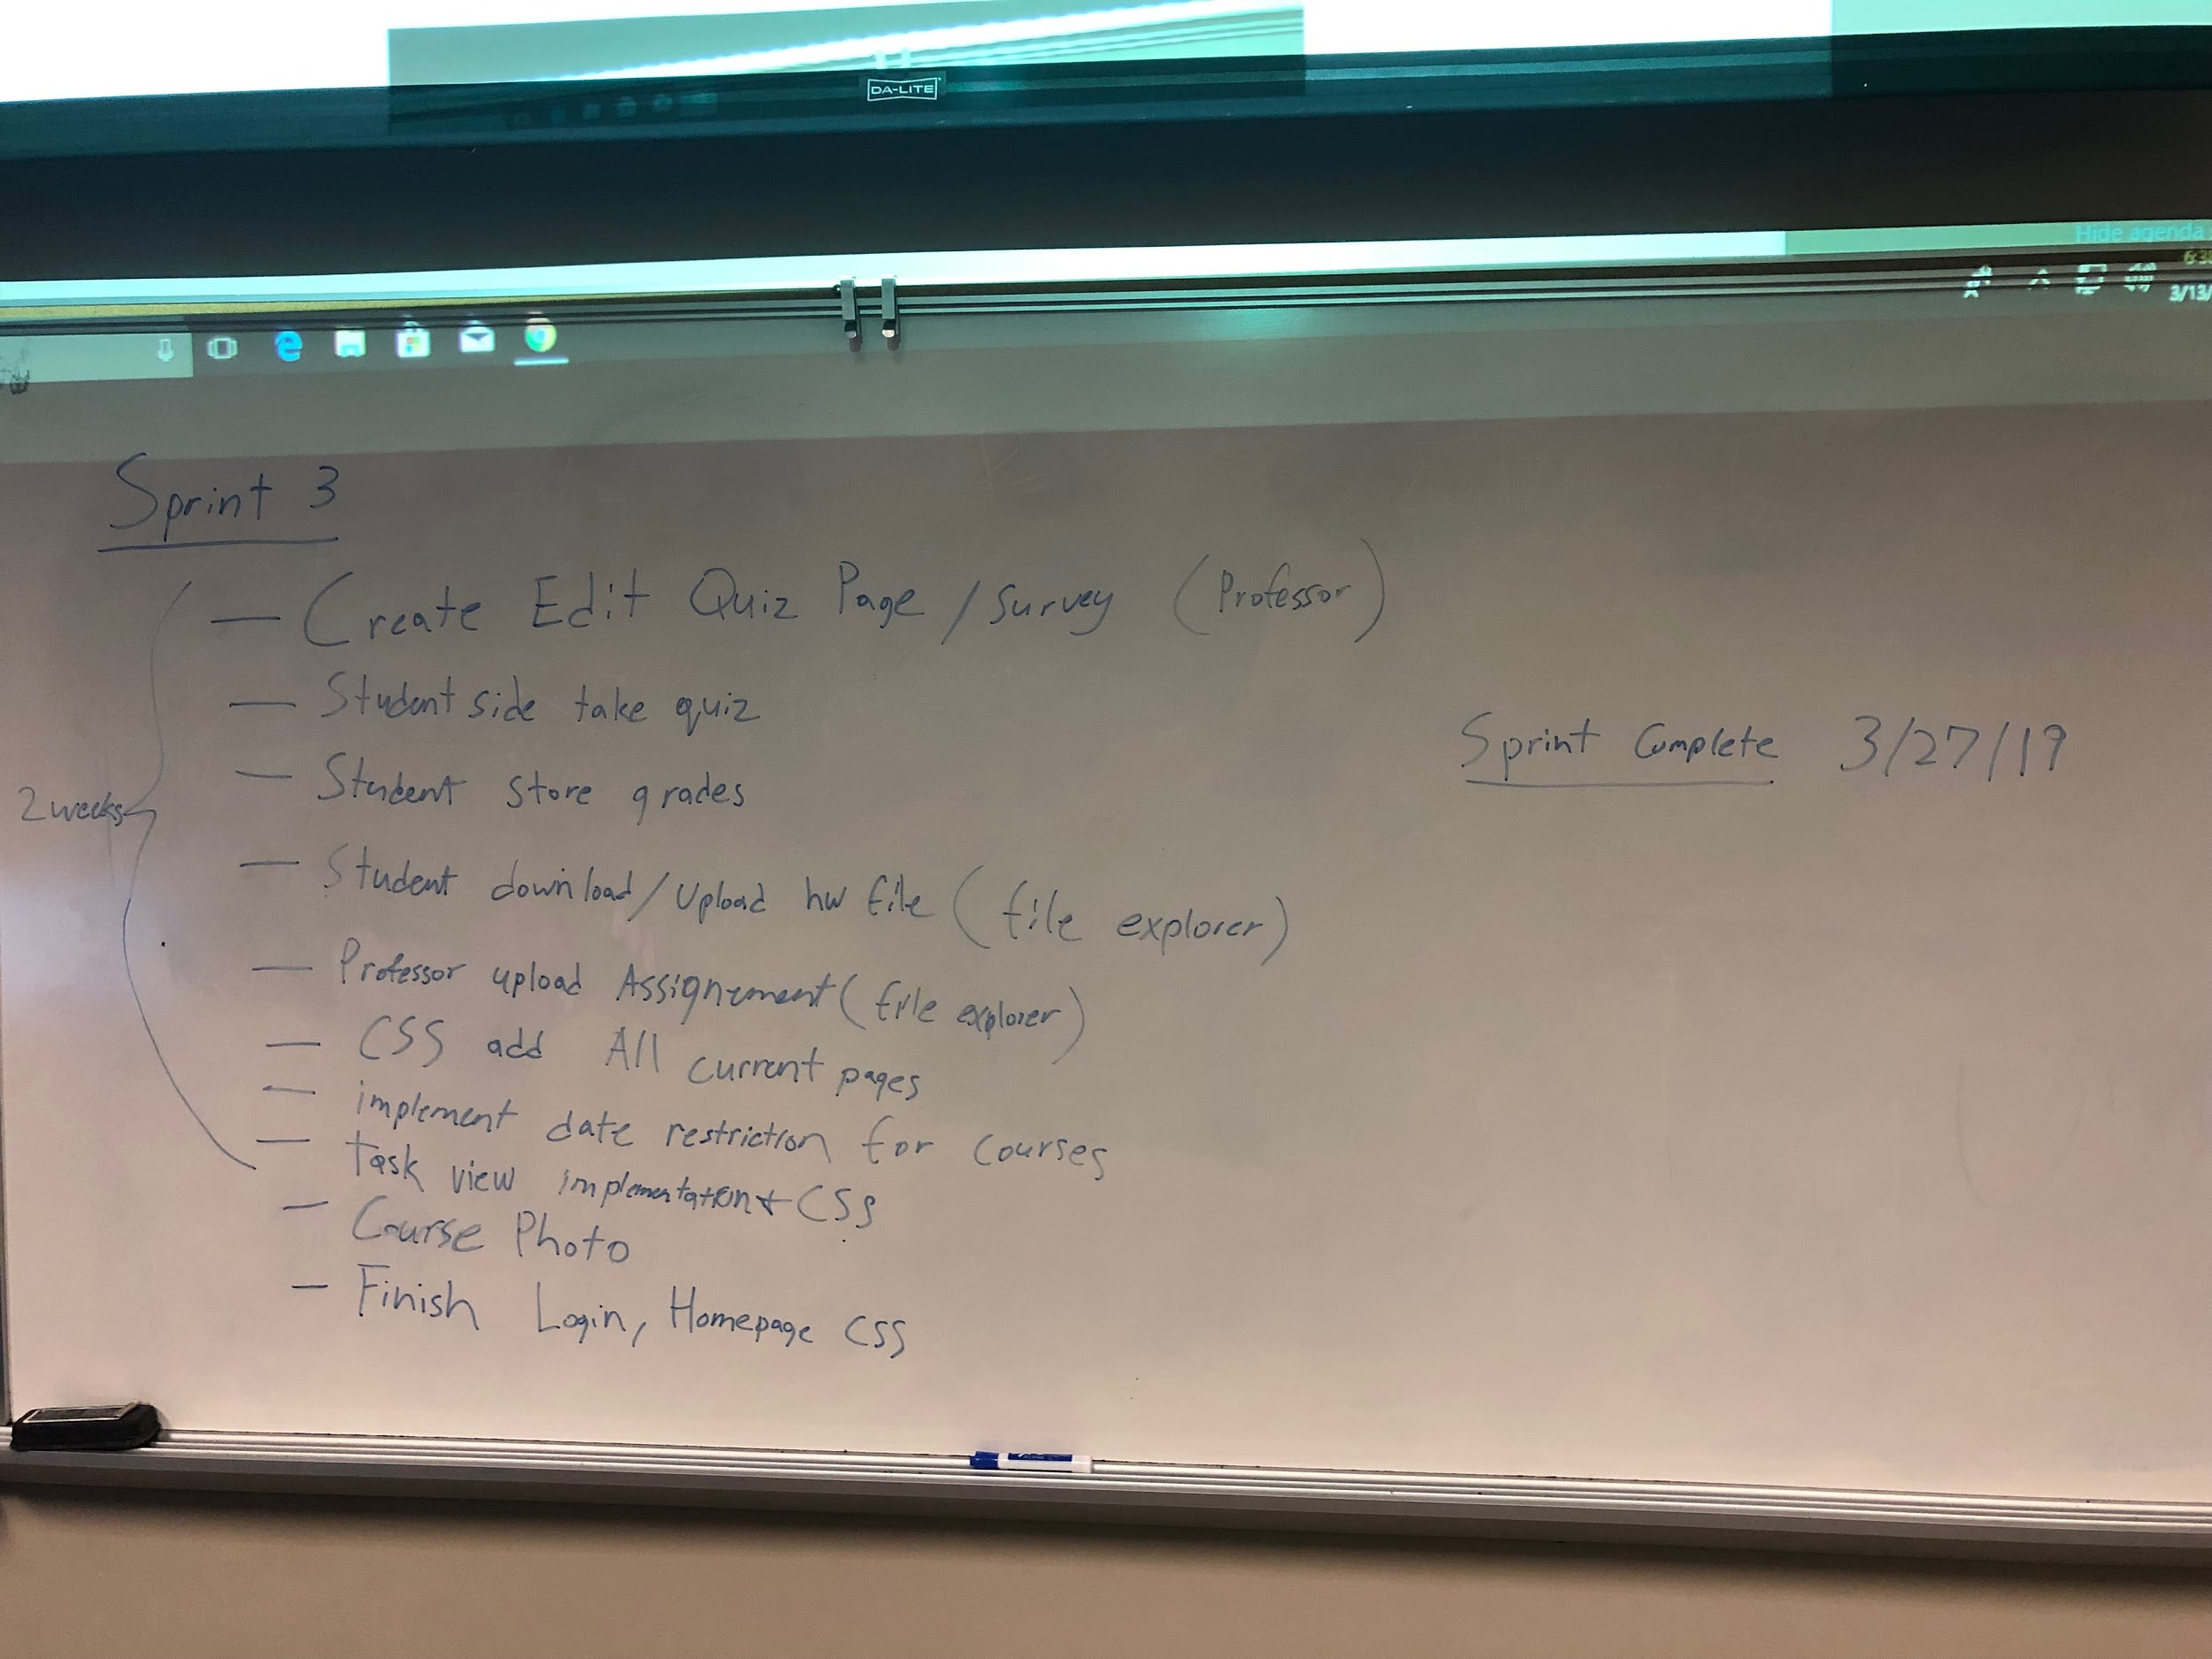 DA-LITE
Hide agenda
3/13/
Sprint 3
— Create Edit Quiz Page / Survey (Professor)
— Student side take quiz
Sprint Complete 3/27/19
— Student store grades
2 weeks
— Student download/Upload hw file (file explorer)
— Professor upload Assignement (file explorer)
— CSS add All current pages
— implement date restriction for courses
— task view implementation + CSS
— Course Photo
— Finish Login, Homepage CSS